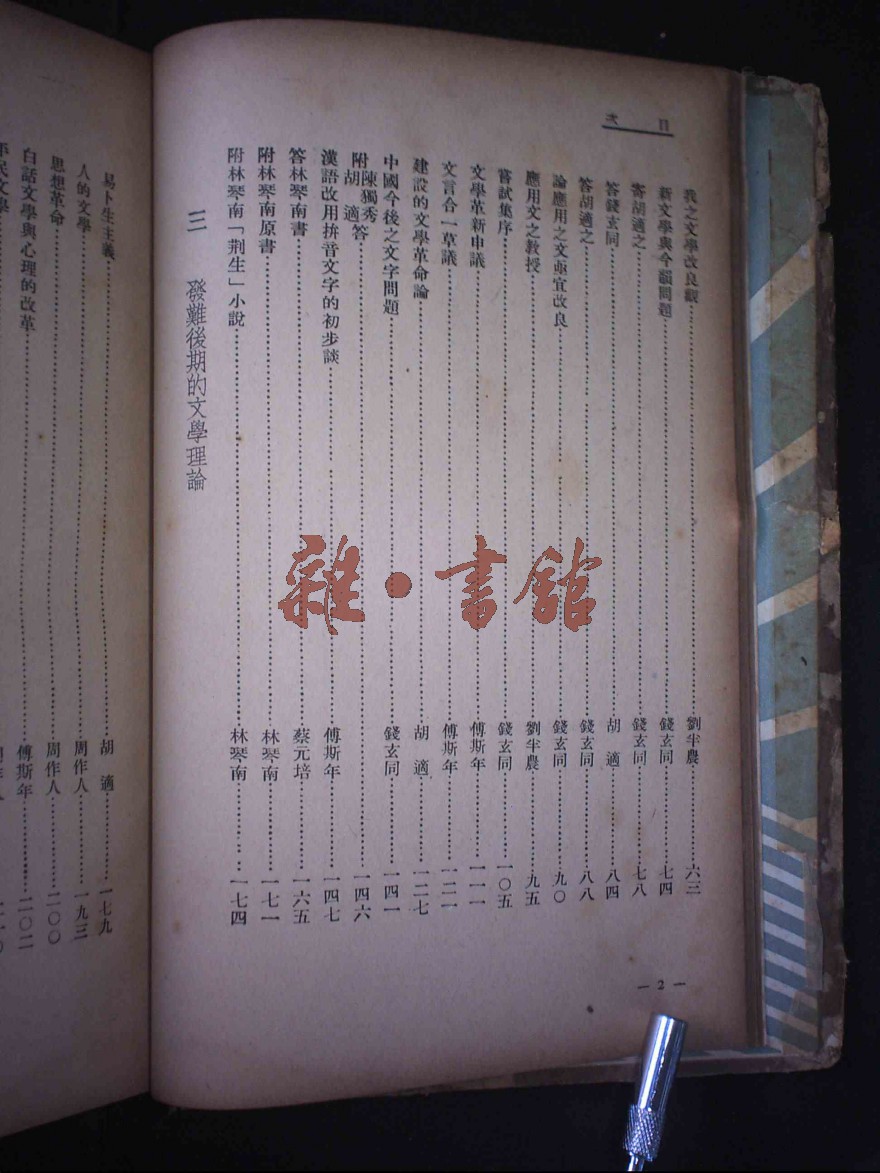 目次
我之文學改良觀……劉半農……六三
新文學與今韻問題……錢玄同……七四
寄胡適之……錢玄同……七八
答錢玄同……胡　適……八四
答胡適之……錢玄同……八八
論應用之文亟宜改良……錢玄同……九〇
應用文之教授……劉半農……九五
嘗試集序……錢玄同……一〇五
文學革新申議……傅斯年……一一一
文言合一草議……傅斯年……一二一
建設的文學革命論……胡　適……一二七
中國今後之文字問題……錢玄同……一四一
附陳獨秀胡　適答……一四六
漢語改用拼音文字的初步談……傅斯年……一四七
答林琴南書……蔡元培……一六五
附林琴南原書……林琴南……一七一
附林琴南「荆生」小說……林琴南……一七四
三　發難後期的文學理論
— 2 —
易卜生主義……胡　適……一七九
人的文學……周作人……一九三
思想革命……周作人……二〇〇
白話文學與心理的改革……傅斯年……二〇二
雜·書館